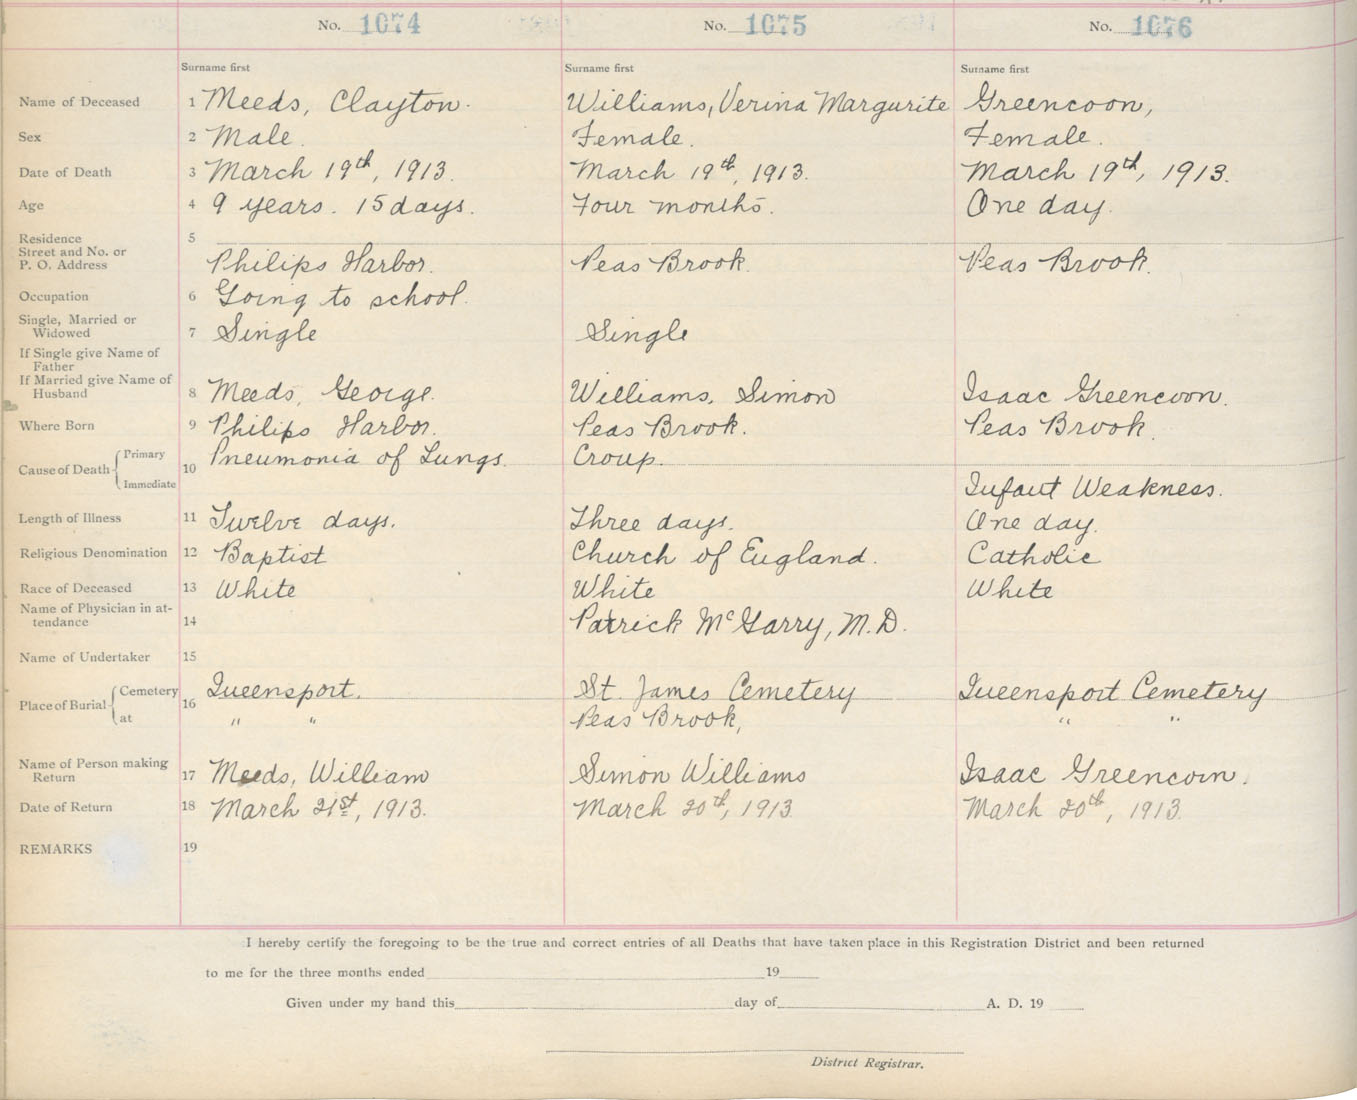 No. 1074 No. 1075 No. 1076
Surname first Surname first Surname first
Name of Deceased 1 Meeds, Clayton. Williams, Verina Margurite Greencoon,
Sex 2 Male. Female. Female.
Date of Death 3 March 19th, 1913. March 19th, 1913. March 19th, 1913.
Age 4 9 years. 15 days. Four months. One day.
Residence 5
Street and No. or
P. O. Address Philips Harbor. Peas Brook. Peas Brook.
Occupation 6 Going to school.
Single, Married or
Widowed 7 Single Single
If Single give Name of
Father
If Married give Name of
Husband 8 Meeds, George. Williams, Simon Isaac Greencoon.
Where Born 9 Philips Harbor. Peas Brook. Peas Brook.
Cause of Death Primary 10 Pneumonia of Lungs. Croup.
Immediate Infant Weakness.
Length of Illness 11 Twelve days. Three days. One day.
Religious Denomination 12 Baptist Church of England. Catholic
Race of Deceased 13 White White White
Name of Physician in at-
tendance 14 Patrick McGarry, M.D.
Name of Undertaker 15
Place of Burial Cemetery 16 Queensport. St. James Cemetery Queensport Cemetery
at " " Peas Brook, " "
Name of Person making
Return 17 Meeds, William Simon Williams Isaac Greencoin.
Date of Return 18 March 21st, 1913. March 20th, 1913. March 20th, 1913.
REMARKS 19
I hereby certify the foregoing to be the true and correct entries of all Deaths that have taken place in this Registration District and been returned
to me for the three months ended 19
Given under my hand this day of A. D. 19
District Registrar.